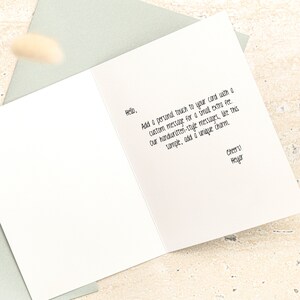 Hello,
Add a personal touch to your card with a
custom message for a small extra fee.
Our handwritten-style messages, like this
sample, add a unique charm.
Cheers!